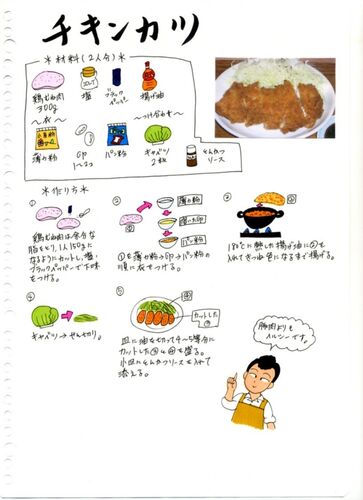 チキンカツ
＊材料(2人分)＊
鶏むね肉
300g
塩
ブラック
ペッパー
揚げ油
〜衣〜
〜つけ合わせ〜
薄力粉
卵
1〜2コ
パン粉
キャベツ
2枚
とんかつ
ソース
＊作り方＊
①
鶏むね肉は余分な
脂をとり、1人150gに
なるようにカットし、塩・
ブラックペッパーで下味
をつける。
②
薄力粉
溶き卵
パン粉
①を薄力粉→卵→パン粉の
順に衣をつける。
③
180℃に熱した揚げ油に②を
入れてきつね色になるまで揚げる。
④
キャベツ→せん切り。
⑤
カットした
③
④
皿に油をきって4〜5等分に
カットした③と④を盛る。
小皿にとんかつソースを入れて
添える。
豚肉よりも
ヘルシーです。